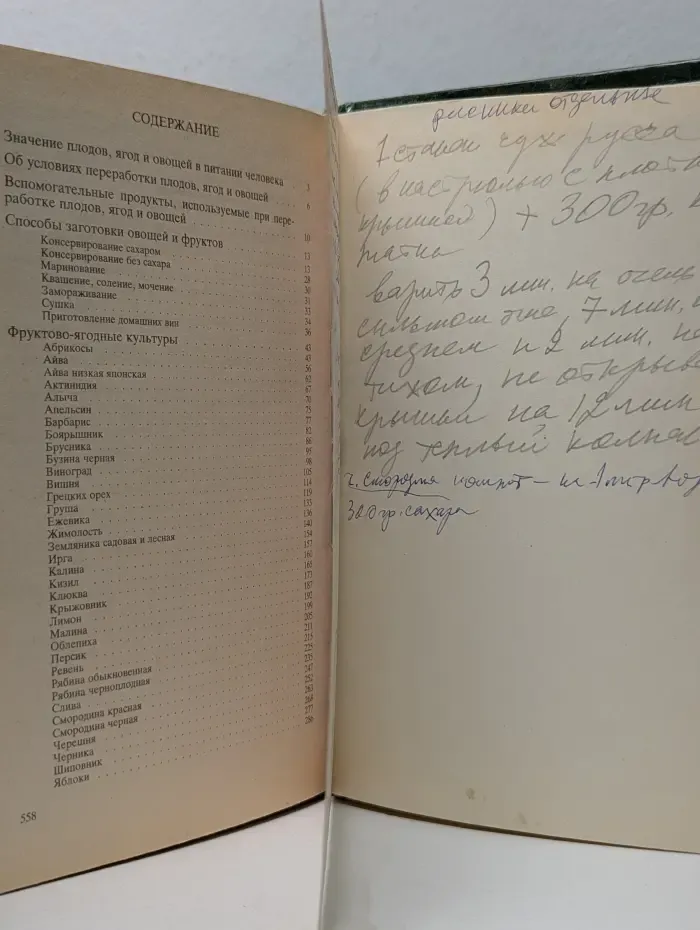 СОДЕРЖАНИЕ
Значение плодов, ягод и овощей в питании человека . 3
Об условиях переработки плодов, ягод и овощей . . . 6
Вспомогательные продукты, используемые при пере-
работке плодов, ягод и овощей . . . 10
Способы заготовки овощей и фруктов
Консервирование сахаром
Консервирование без сахара
Маринование
Квашение, соление, мочение
Замораживание
Сушка
Приготовление домашних вин
Фруктово-ягодные культуры
Абрикосы
Айва
Айва низкая японская
Актинидия
Алыча
Апельсин
Барбарис
Боярышник
Брусника
Бузина черная
Виноград
Вишня
Грецких орех
Груша
Ежевика
Жимолость
Земляника садовая и лесная
Ирга
Калина
Кизил
Клюква
Крыжовник
Лимон
Малина
Облепиха
Персик
Ревень
Рябина обыкновенная
Рябина черноплодная
Слива
Смородина красная
Смородина черная
Черешня
Черника
Шиповник
Яблоки
558
рисинки отдельные
1 стакан сух. русса
(в кастрюлью с плотн
крышкой) + 300 гр. к
пятка
варить 3 мин. на очень
сильном огне, 7 мин. н
среднем и 2 мин. на
тихом, не открыва
крышки на 12 мин
под теплый колпак
ч. смородина компот – на 1 литр вод
300 гр. сахара